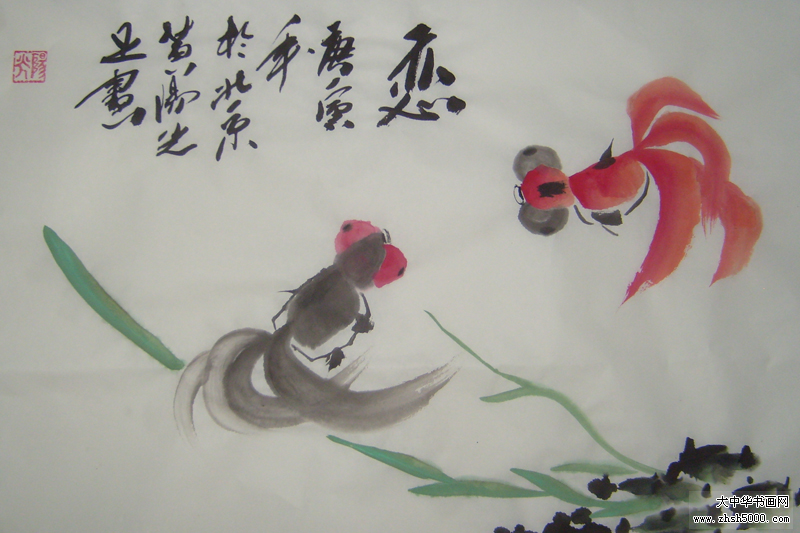 恋
庚寅
年
於北京
黄陽光
足
陽光
大中华书画网
www.zhsh5000.com